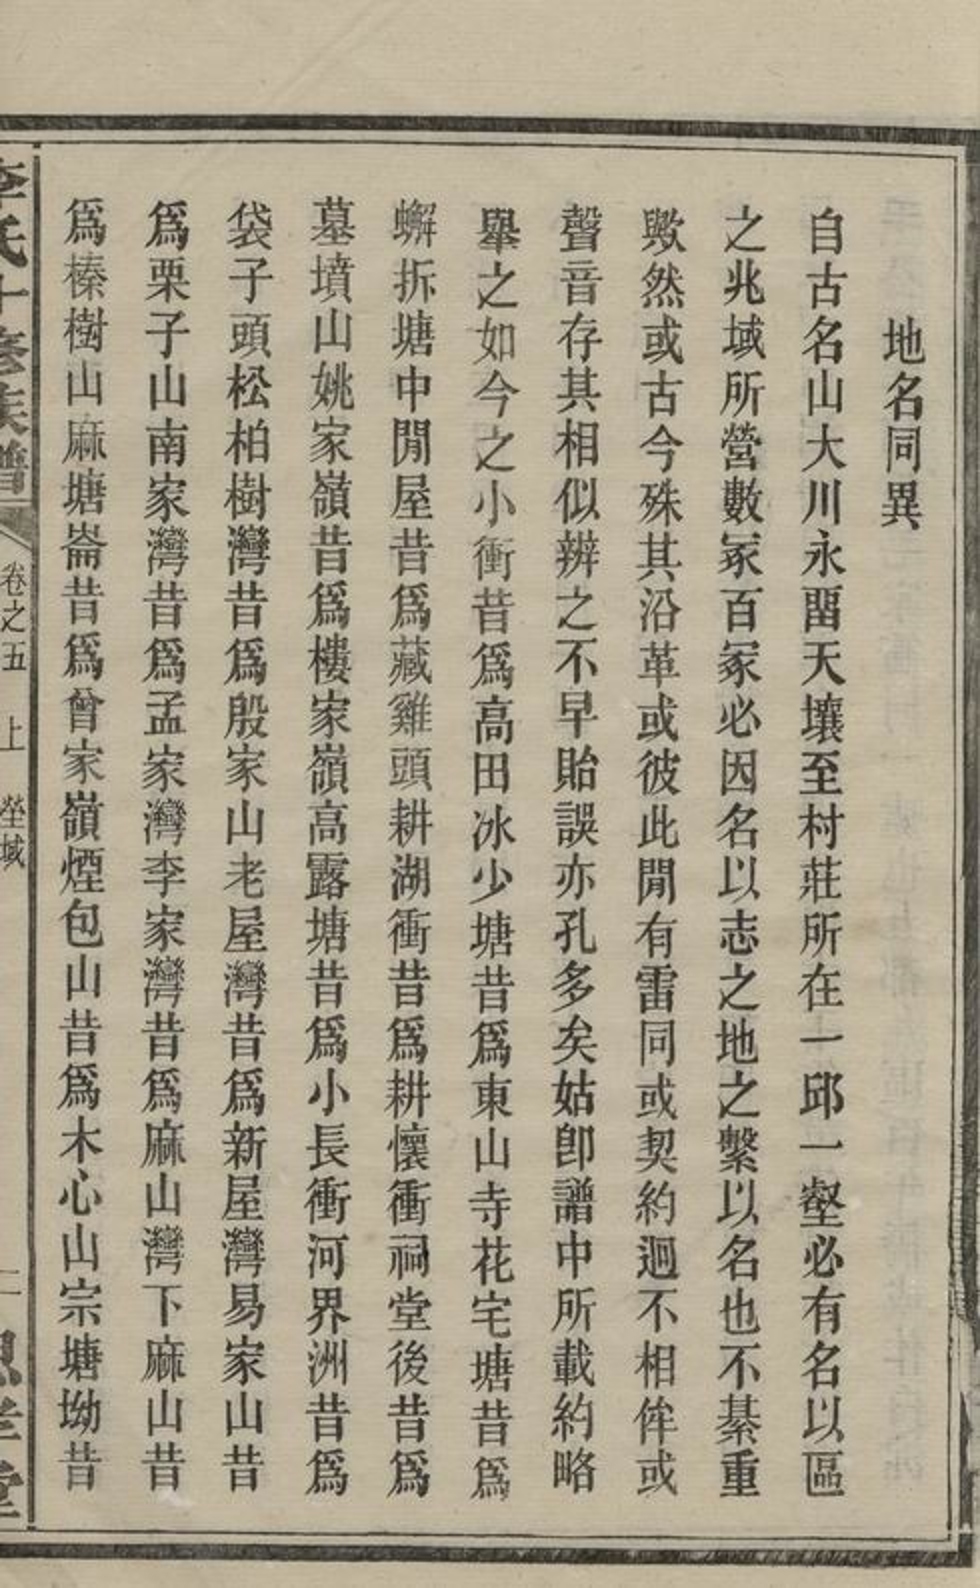 地名同異
自古名山大川永留天壤至村莊所在一邱一壑必有名以區
之兆域所營數冢百冢必因名以志之地之繫以名也不綦重
歟然或古今殊其沿革或彼此閒有雷同或契約迥不相侔或
聲音存其相似辨之不早貽誤亦孔多矣姑卽譜中所載約略
舉之如今之小衝昔爲高田冰少塘昔爲東山寺花宅塘昔爲
蠏拆塘中閒屋昔爲藏雞頭耕湖衝昔爲耕懷衝祠堂後昔爲
墓墳山姚家嶺昔爲樓家嶺高露塘昔爲小長衝河界洲昔爲
袋子頭松柏樹灣昔爲殷家山老屋灣昔爲新屋灣易家山昔
爲栗子山南家灣昔爲孟家灣李家灣昔爲麻山灣下麻山昔
爲榛樹山麻塘崙昔爲曾家嶺煙包山昔爲木心山宗塘坳昔
李氏十修族譜
卷之五 上 塋域
一
思孝堂